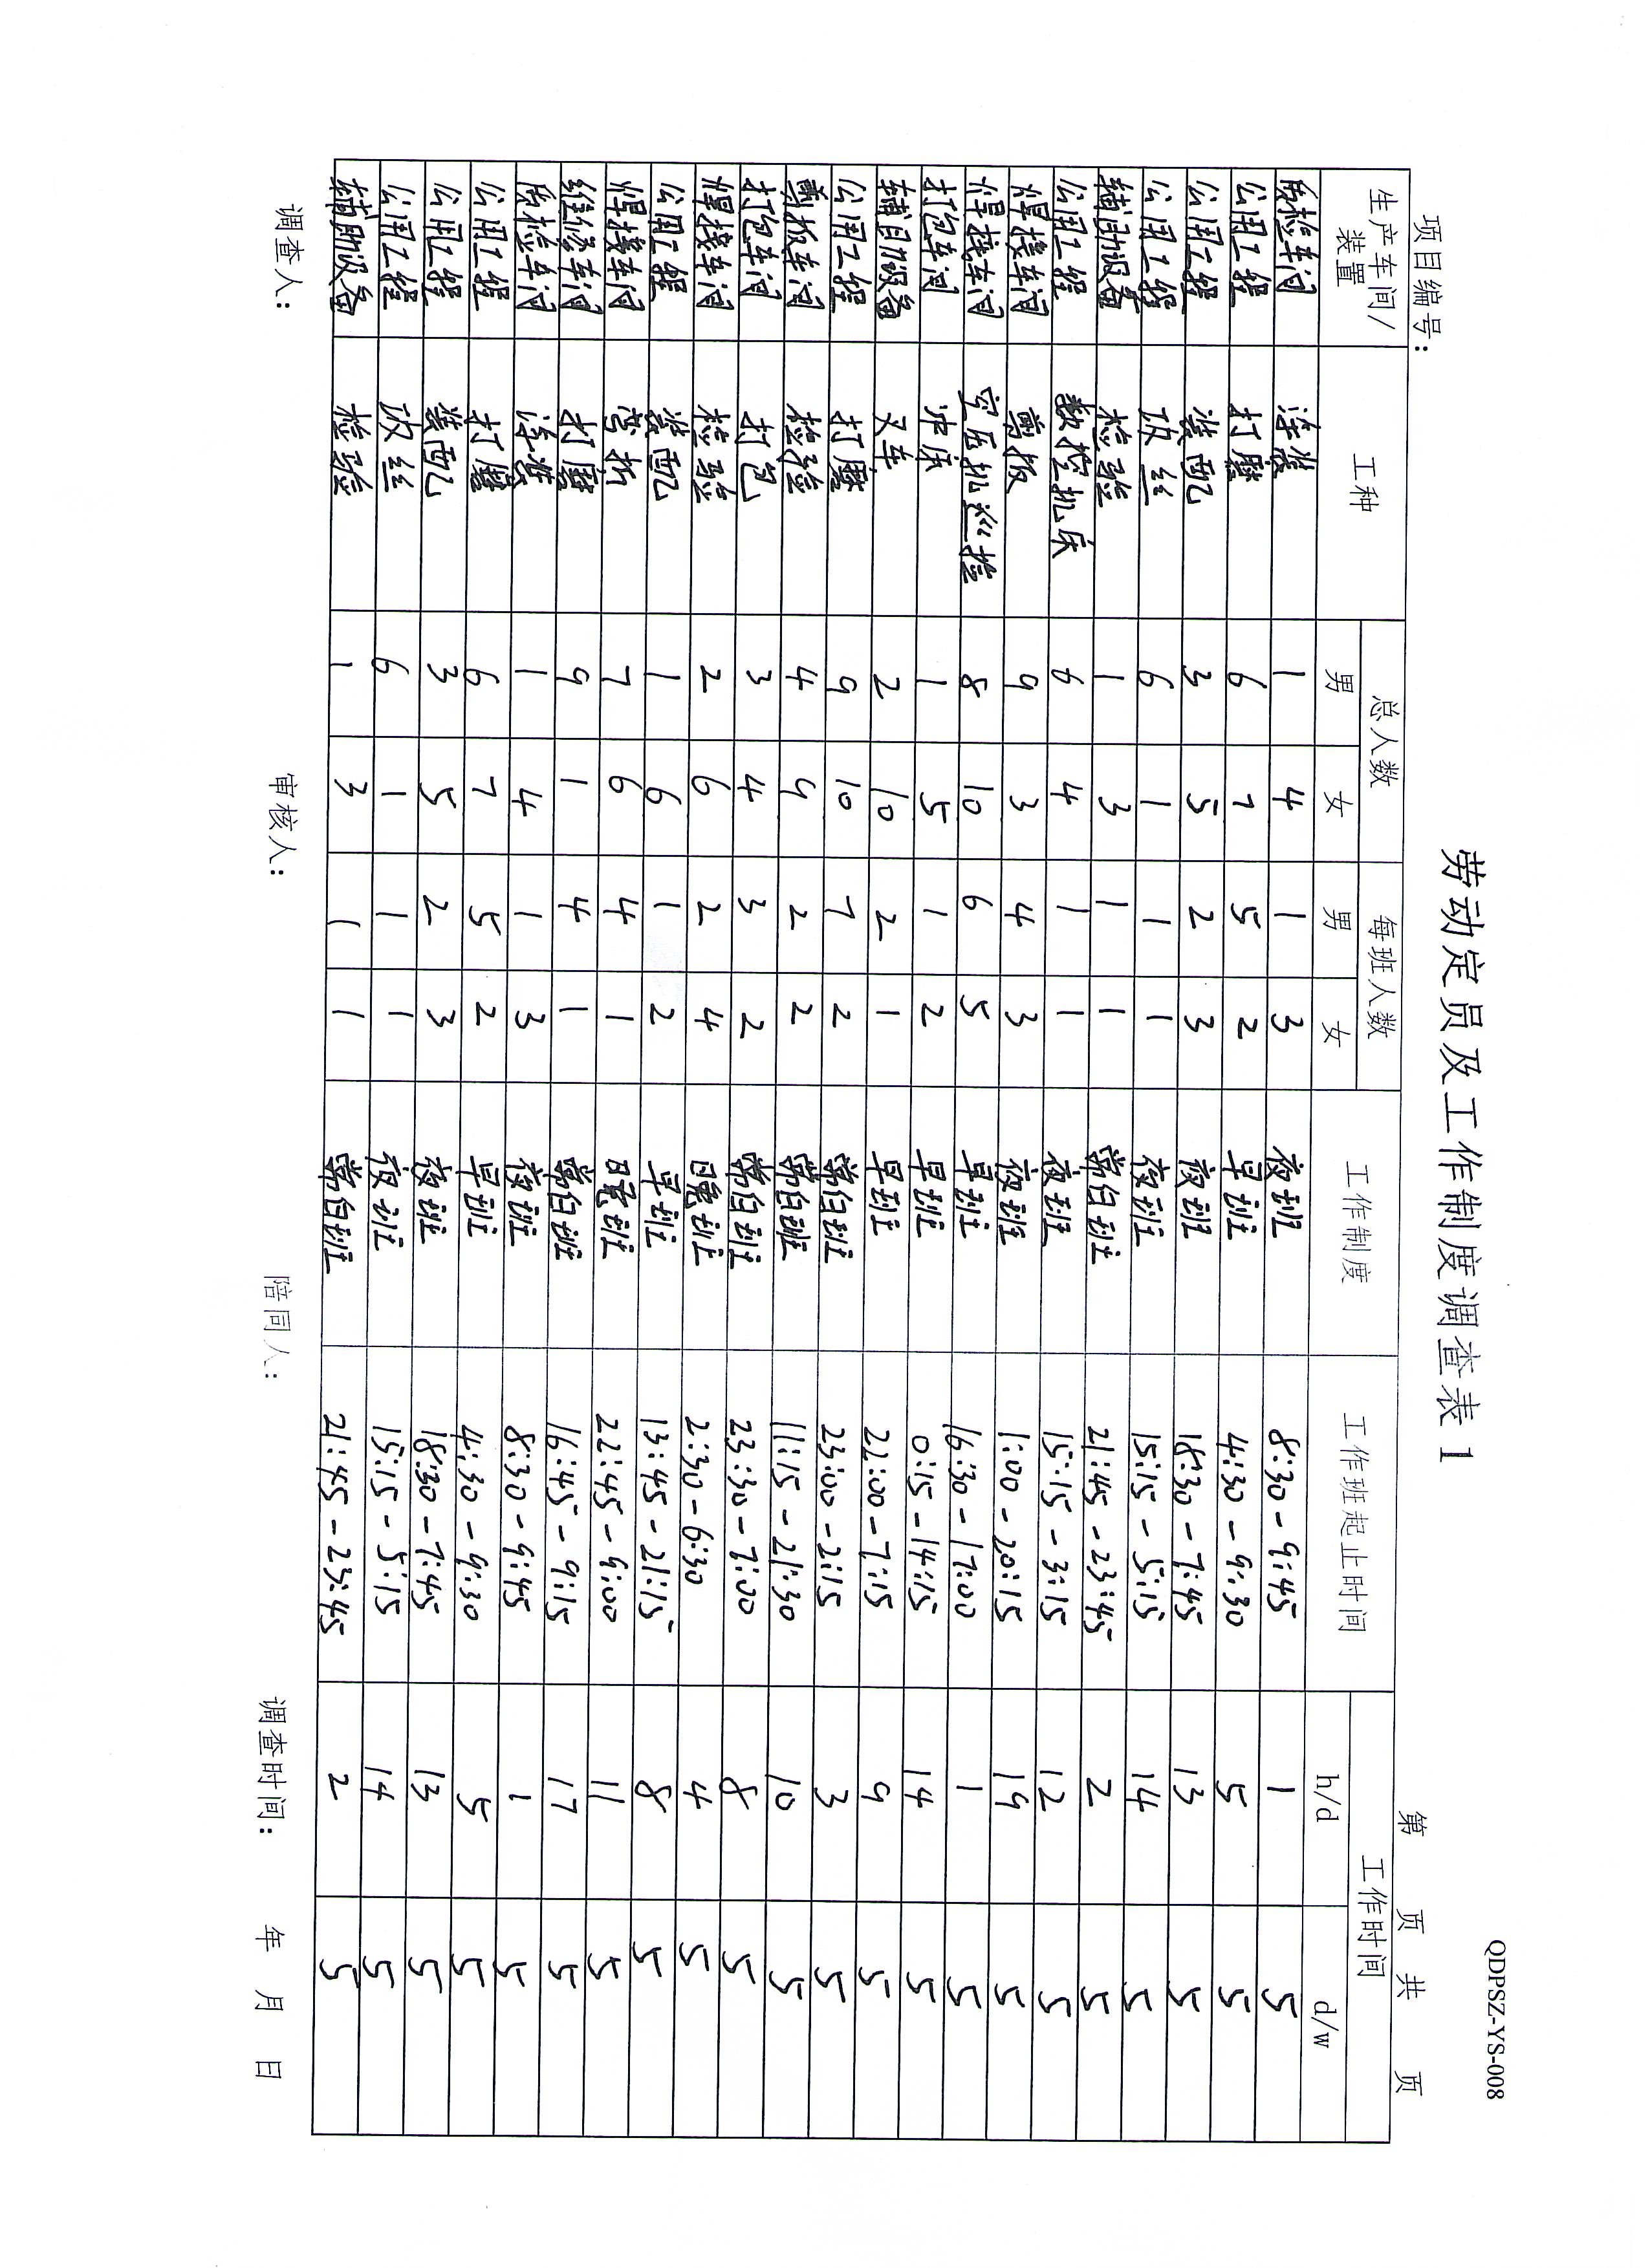 QDPSZ-YS-008
劳动定员及工作制度调查表1
项目编号: 第 页 共 页
生产车间/装置 工种 总人数 每班人数 工作制度 工作班起止时间 工作时间
男 女 男 女 h/d d/w
质检车间 涂装 1 4 1 3 夜班 8:30-9:45 1 5
公用工程 打磨 6 7 5 2 早班 4:30-9:30 5 5
公用工程 装配 3 5 2 3 夜班 18:30-7:45 13 5
公用工程 攻丝 6 1 1 1 夜班 15:15-5:15 14 5
辅助设备 检验 1 3 1 1 常白班 21:45-23:45 2 5
公用工程 数控机床 6 4 1 1 夜班 15:15-3:15 12 5
焊接车间 剪板 9 3 4 3 夜班 1:00-20:15 19 5
焊接车间 空压机巡检 8 10 6 5 早班 16:30-17:00 1 5
打包车间 冲床 1 5 1 2 早班 0:15-14:15 14 5
辅助设备 叉车 2 10 2 1 早班 22:00-7:15 9 5
公用工程 打磨 9 10 7 2 常白班 23:00-2:15 3 5
剪板车间 检验 4 9 2 2 常白班 11:15-21:30 10 5
打包车间 打包 3 4 3 2 常白班 23:30-7:00 8 5
焊接车间 检验 2 6 2 4 晚班 2:30-6:30 4 5
公用工程 装配 1 6 1 2 早班 13:45-21:15 8 5
焊接车间 弯折 7 6 4 1 晚班 22:45-9:00 11 5
维修车间 打磨 9 1 4 1 常白班 16:45-9:15 17 5
质检车间 涂装 1 4 1 3 夜班 8:30-9:45 1 5
公用工程 打磨 6 7 5 2 早班 4:30-9:30 5 5
公用工程 装配 3 5 2 3 夜班 18:30-7:45 13 5
公用工程 攻丝 6 1 1 1 夜班 15:15-5:15 14 5
辅助设备 检验 1 3 1 1 常白班 21:45-23:45 2 5
调查人: 审核人: 陪同人: 调查时间: 年 月 日